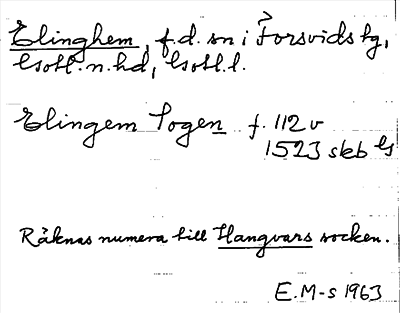 Elinghem, f.d. sn i Forsvids tg,
Gotl. n. hd, Gotl. l.
Elingem Sogen f. 112 v
1523 skb Gs
Räknas numera till Hangvars socken.
E.M-s 1963